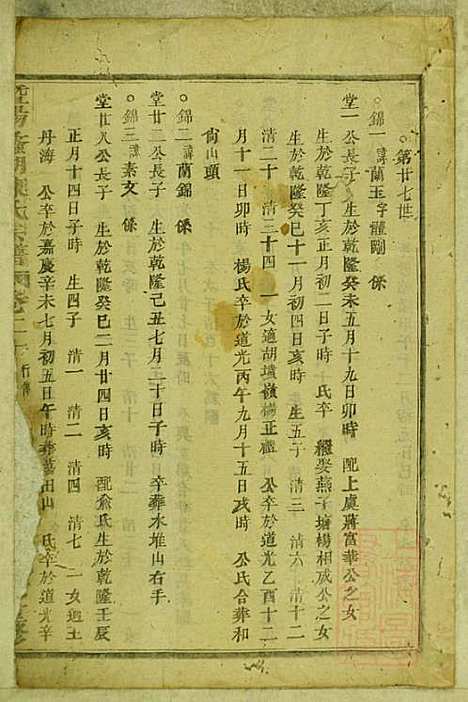 ○第廿七世
○錦一諱蘭玉字體剛 係
堂一公長子 生於乾隆癸未五月十九日卯時 配上虞蔣富華公之女
生於乾隆丁亥正月初二日子時 氏卒 繼娶燕子塘楊相成公之女
生於乾隆癸巳十一月初四日亥時 生五子 清三 清六 清十二
清二十 清三十四 一女適胡墰嶺楊正楹 公卒於道光乙酉十二
月十一日卯時 楊氏卒於道光丙午九月十五日戌時 公氏合葬和
尙山頭
○錦二諱蘭錦 係
堂廿二公長子 生於乾隆己丑七月二十日子時 卒葬水堆山右手
○錦三諱素文 係
堂廿八公長子 生於乾隆癸巳二月廿四日亥時 配俞氏生於乾隆壬辰
正月十四日子時 生四子 清一 清二 清四 清七 一女適土
丹海 公卒於嘉慶辛未七月初五日午時 田山 氏卒於道光辛
暨陽 湖陳氏宗譜 卷二十 行傳